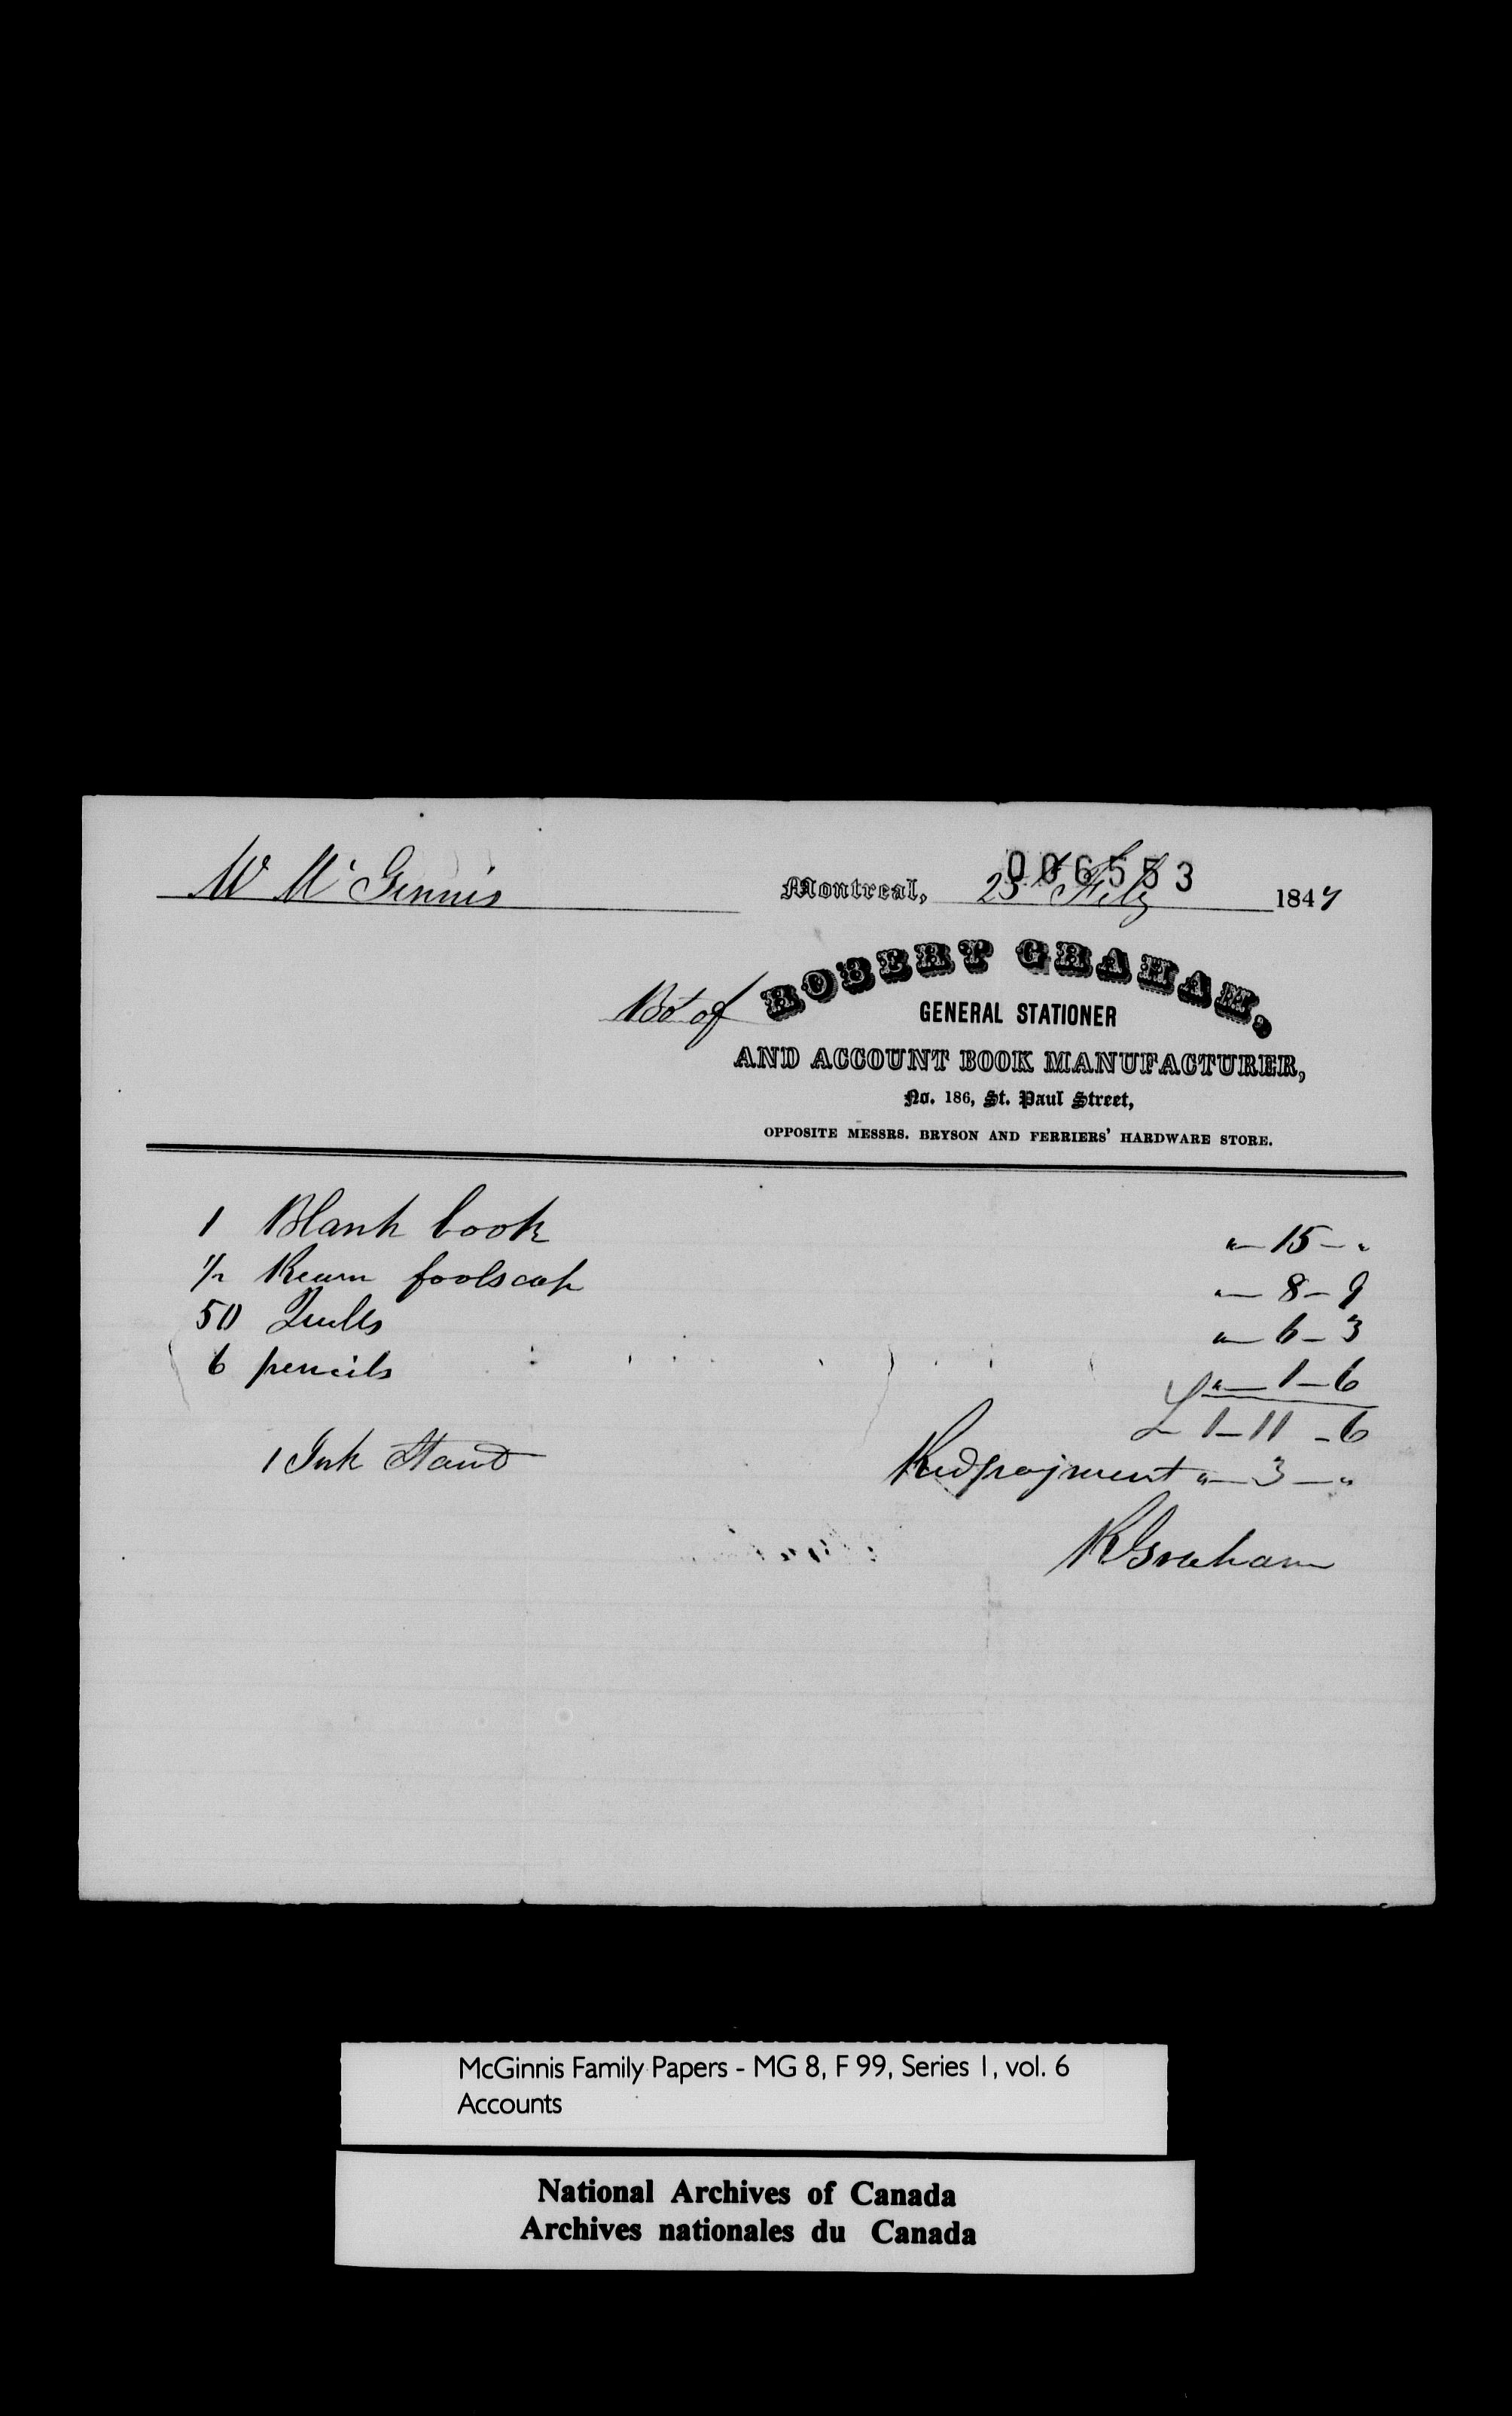 006553
W McGinnis Montreal, 25 Feby 1847
Bot of ROBERT GRAHAM,
GENERAL STATIONER
AND ACCOUNT BOOK MANUFACTURER,
No. 186, St. Paul Street,
OPPOSITE MESSRS. BRYSON AND FERRIERS' HARDWARE STORE.
1 Blank book " — 15 — "
1/2 Ream foolscap " — 8 — 9
50 Quills " — 6 — 3
6 pencils " — 1 — 6
£ 1 — 11 — 6
1 Ink Stand Recd payment " — 3 — "
R Graham
McGinnis Family Papers - MG 8, F 99, Series 1, vol. 6
Accounts
National Archives of Canada
Archives nationales du Canada